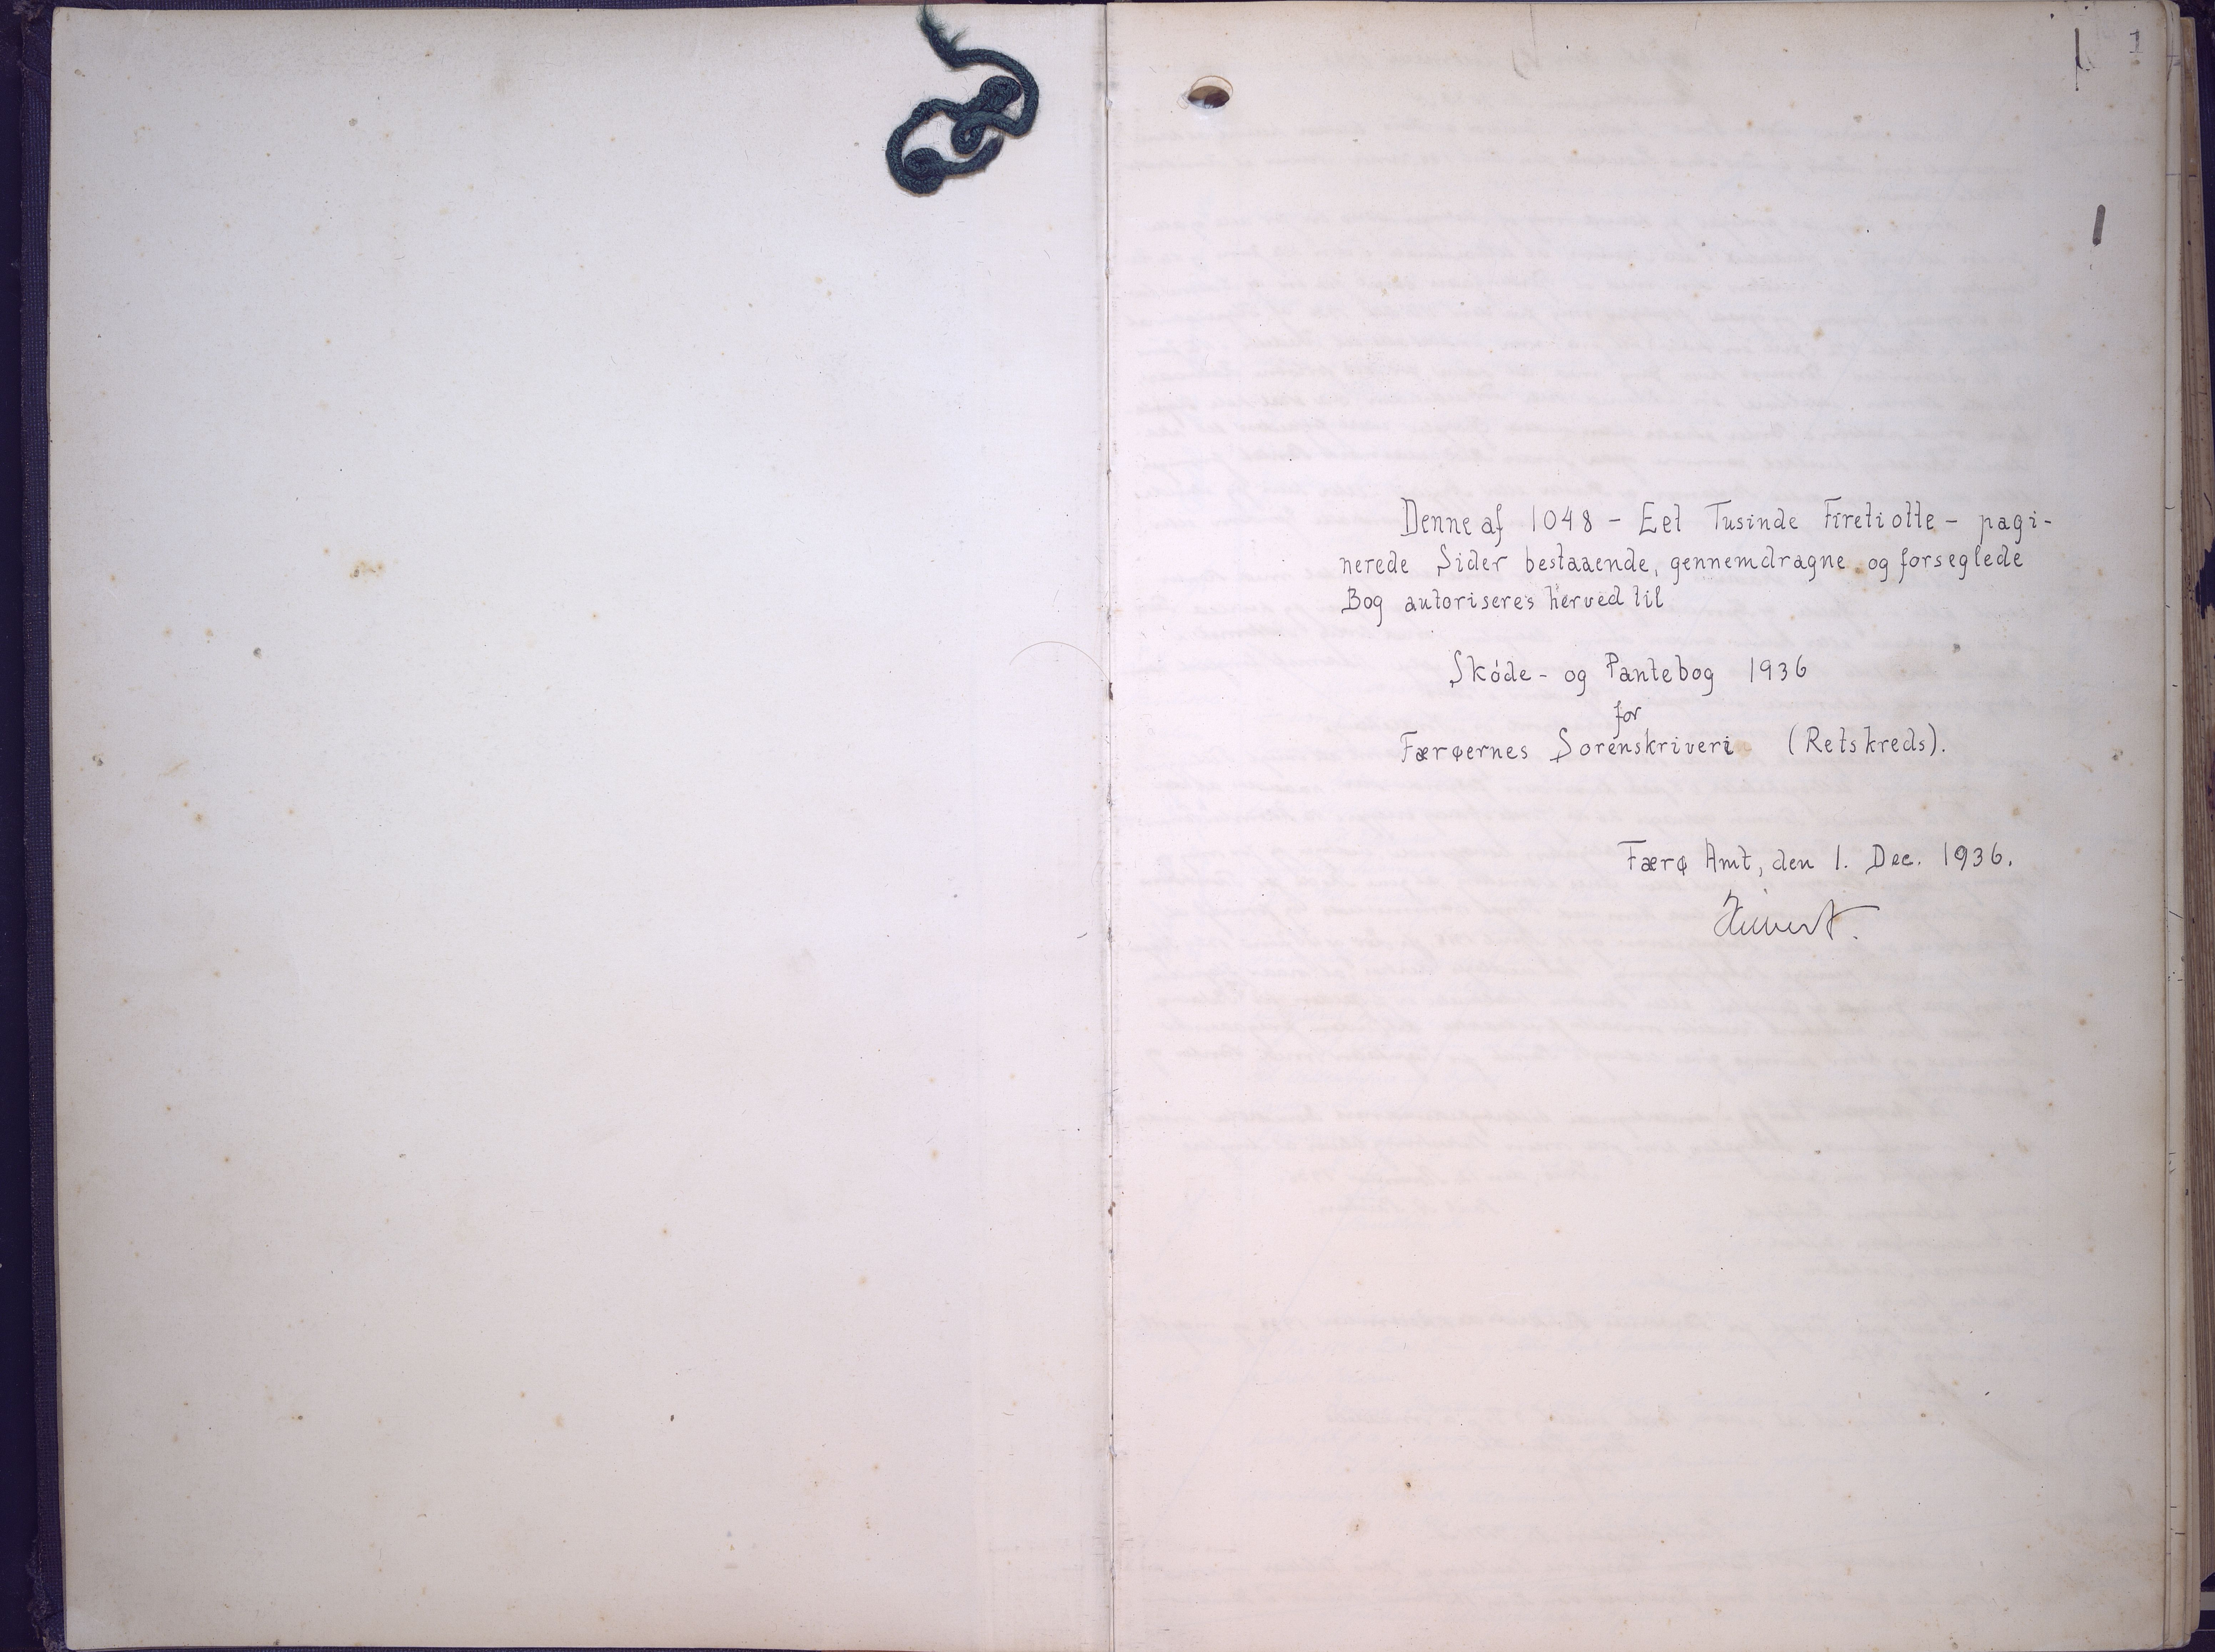 1
Denne af 1048 - Eet Tusinde Firetiotte - pagi-
nerede Sider bestaaende, gennemdragne og forseglede
Bog autoriseres herved til
Skóde- og Pantebog 1936
for
Færøernes Sorenskriveri (Retskreds).
Færø Amt, den 1. Dec. 1936.